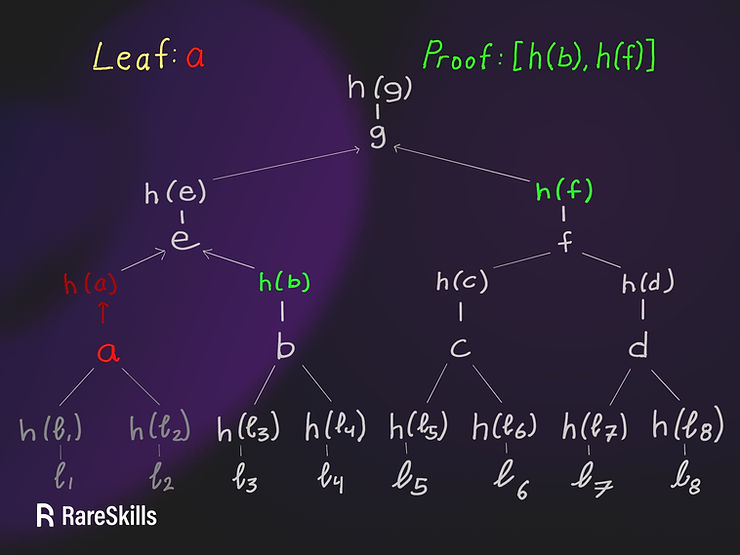 Leaf: a Proof: [h(b), h(f)]
h(g)
g
h(e) h(f)
e f
h(a) h(b) h(c) h(d)
a b c d
h(ℓ₁) h(ℓ₂) h(ℓ₃) h(ℓ₄) h(ℓ₅) h(ℓ₆) h(ℓ₇) h(ℓ₈)
ℓ₁ ℓ₂ ℓ₃ ℓ₄ ℓ₅ ℓ₆ ℓ₇ ℓ₈
RareSkills